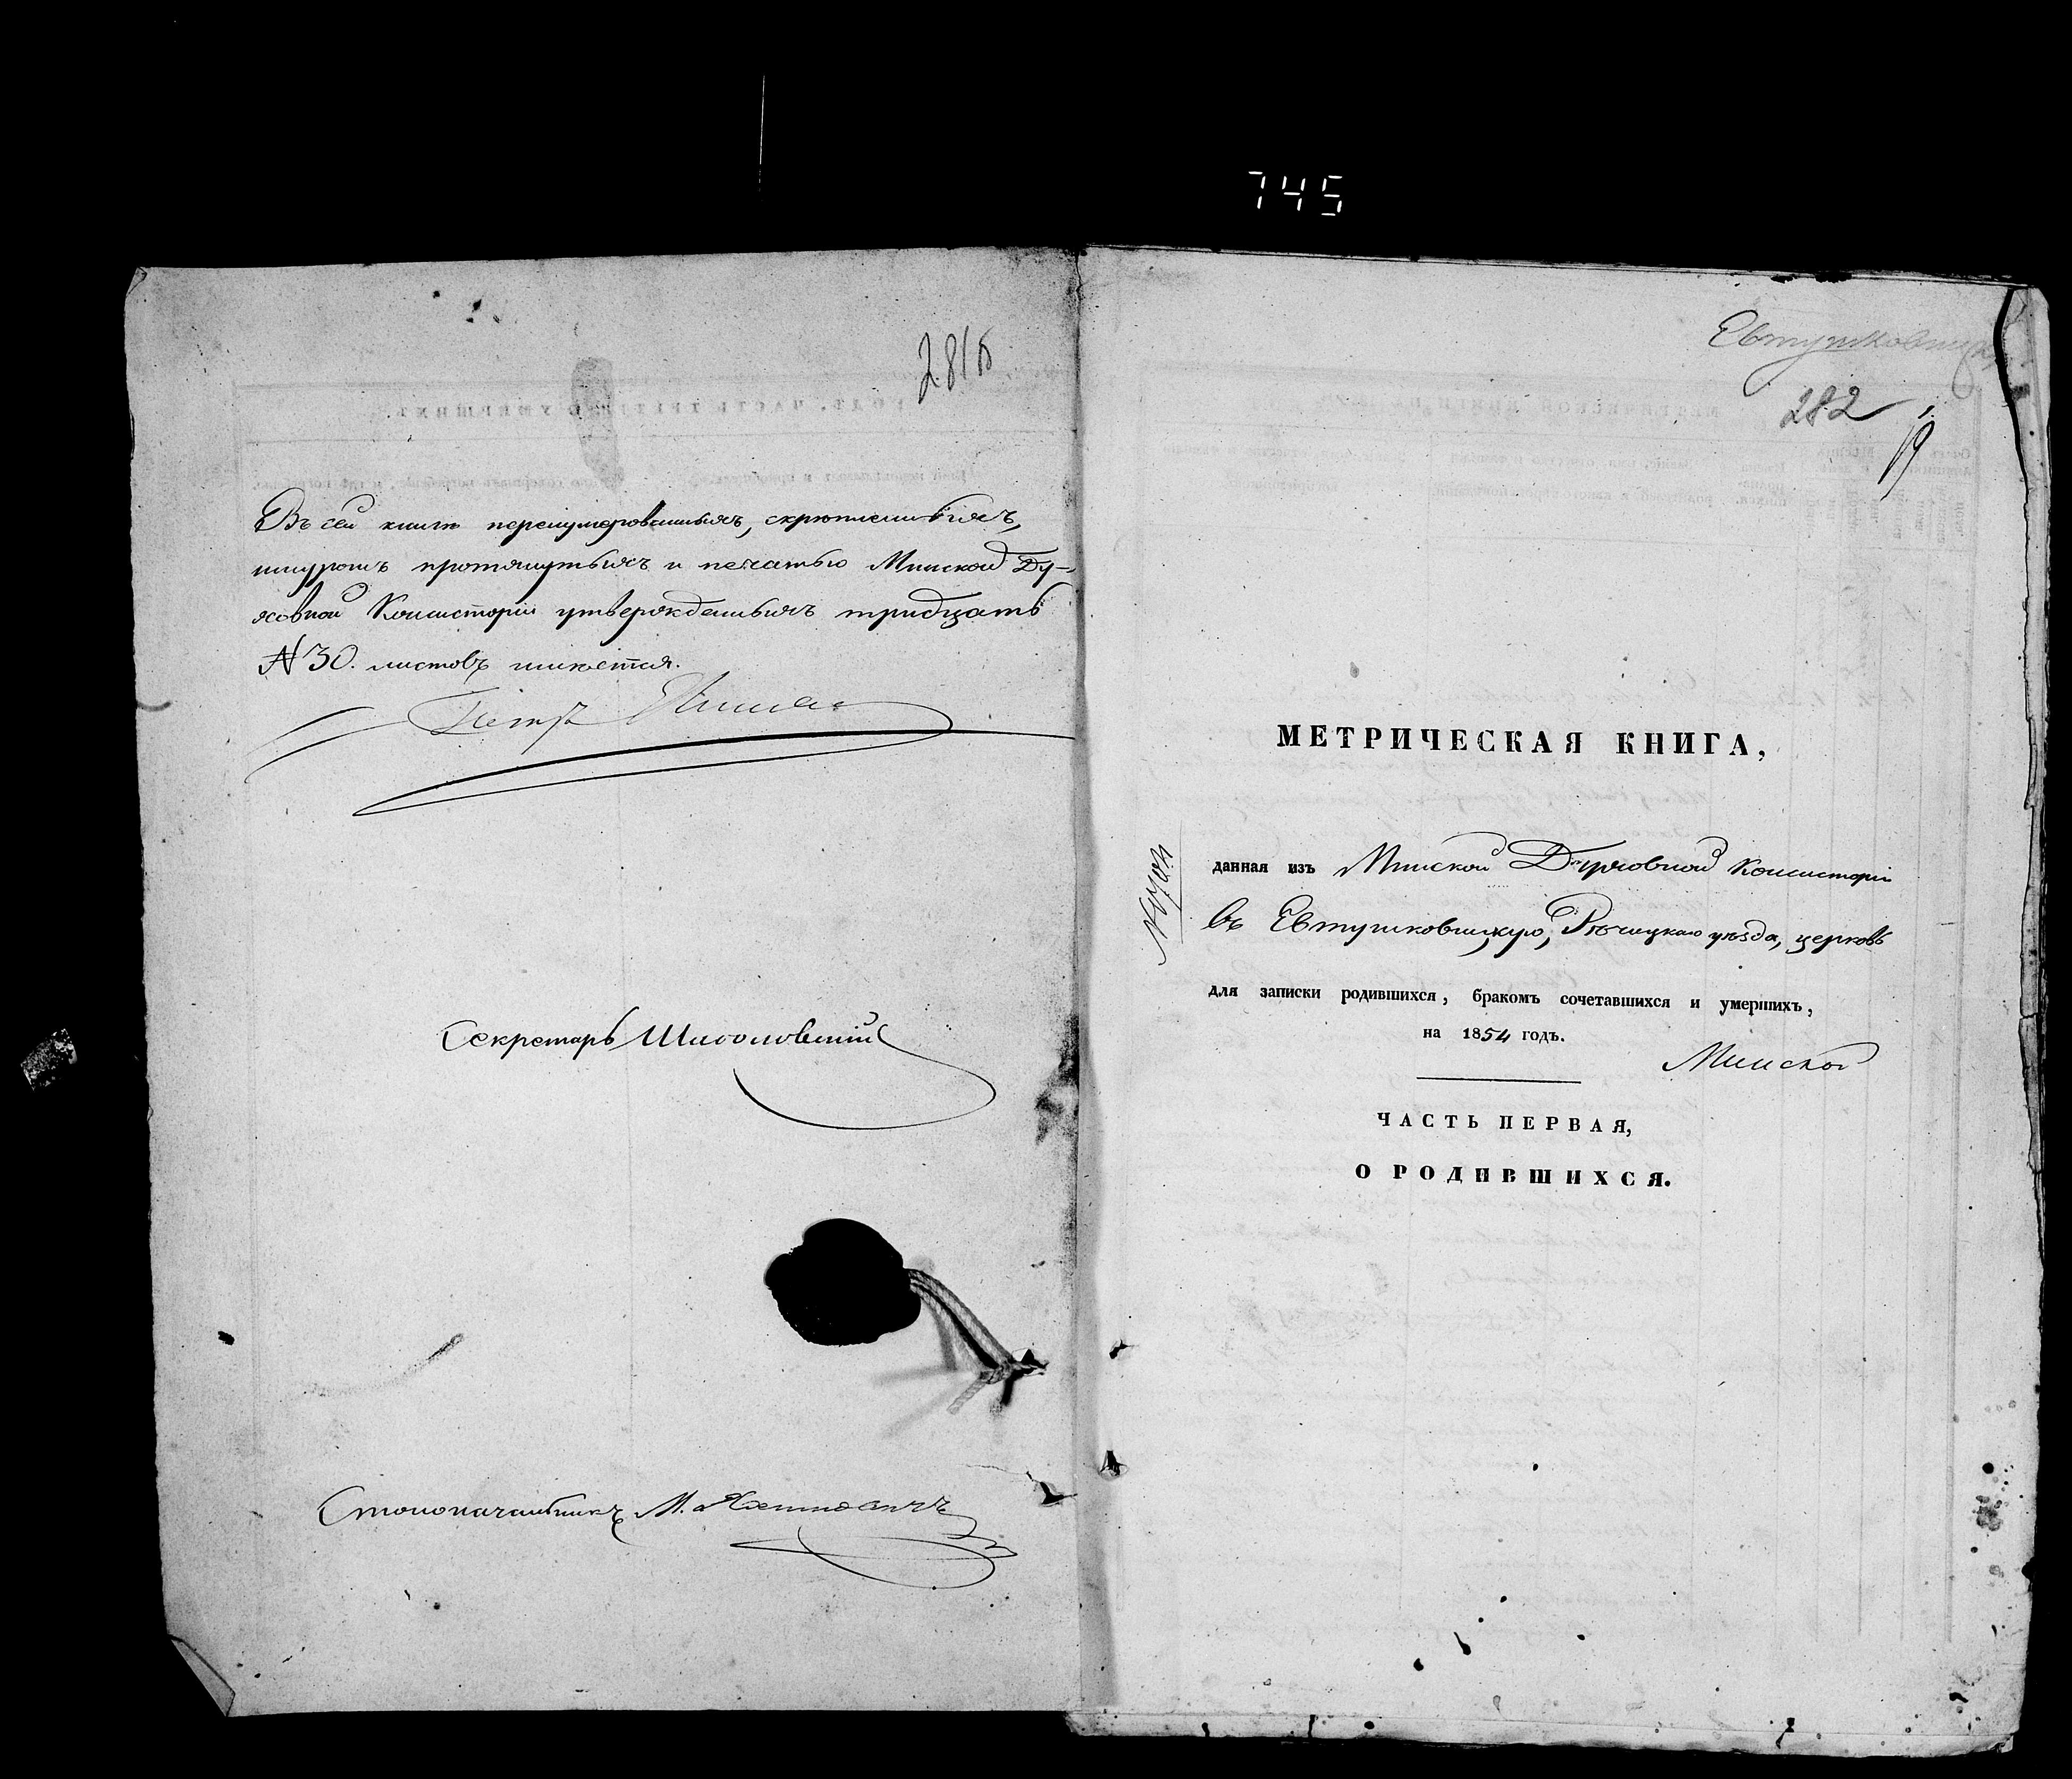 745
281б
Въ сей книгѣ перенумерованныхъ, скрѣпленныхъ,
шнуромъ протянутыхъ и печатью Минской Ду-
ховной Консисторіи утвержденныхъ тридцать
№ 30. листовъ имѣется.
Петръ
Секретарь
Столоначальникъ М.
Евтушковичск
282
МЕТРИЧЕСКАЯ КНИГА,
данная изъ Минской Духовной Консисторіи
въ Евтушковицкую, Рѣчицкаго уѣзда, церковь
для записки родившихся, бракомъ сочетавшихся и умершихъ,
на 1854 годъ.
Минской
ЧАСТЬ ПЕРВАЯ,
О РОДИВШИХСЯ.